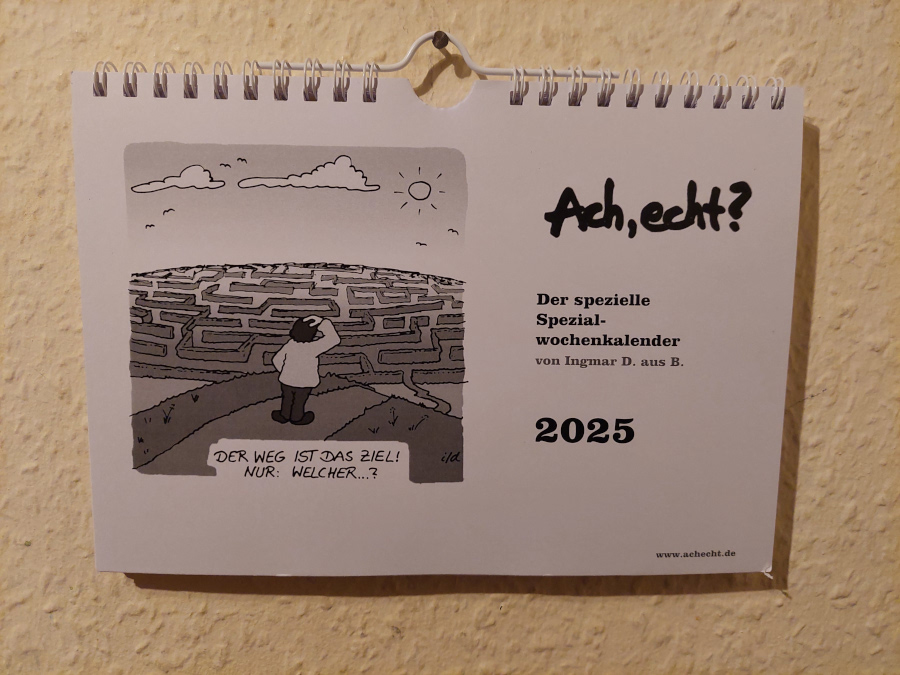 Ach, echt?
Der spezielle
Spezial-
wochenkalender
von Ingmar D. aus B.
2025
DER WEG IST DAS ZIEL!
NUR: WELCHER...?
i/d
www.achecht.de